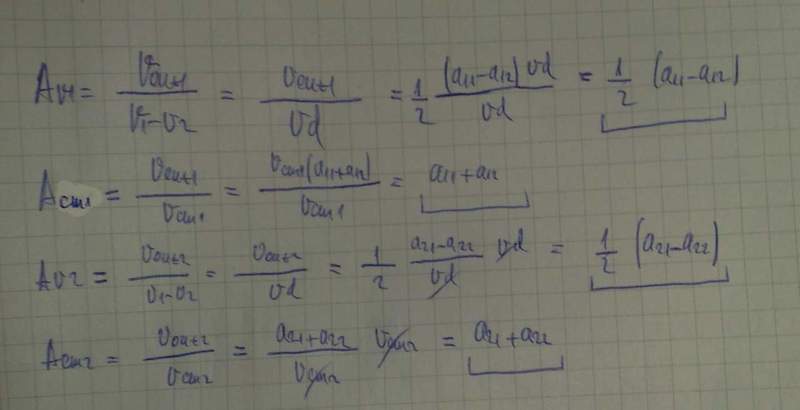 Av1 = vout1 / v1-v2 = vout1 / vd = 1/2 (a11-a12) vd / vd = 1/2 (a11-a12)
Acm1 = vout1 / vcm1 = vcm1(a11+a12) / vcm1 = a11+a12
Av2 = vout2 / v1-v2 = vout2 / vd = 1/2 a21-a22 / vd vd = 1/2 (a21-a22)
Acm2 = vout2 / vcm2 = a21+a22 / vcm2 vcm2 = a21+a22